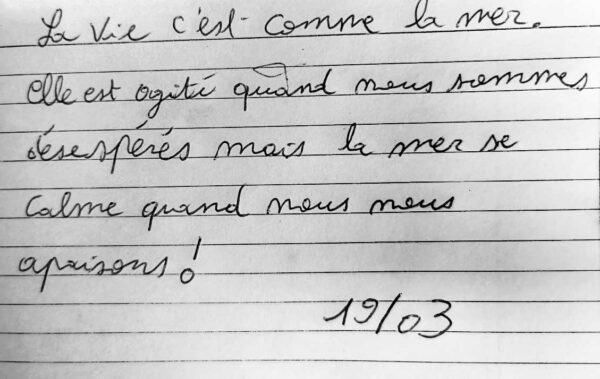 La vie c'est comme la mer.
elle est agité quand nous sommes
désespérés mais la mer se
calme quand nous nous
apaisons !
19/03